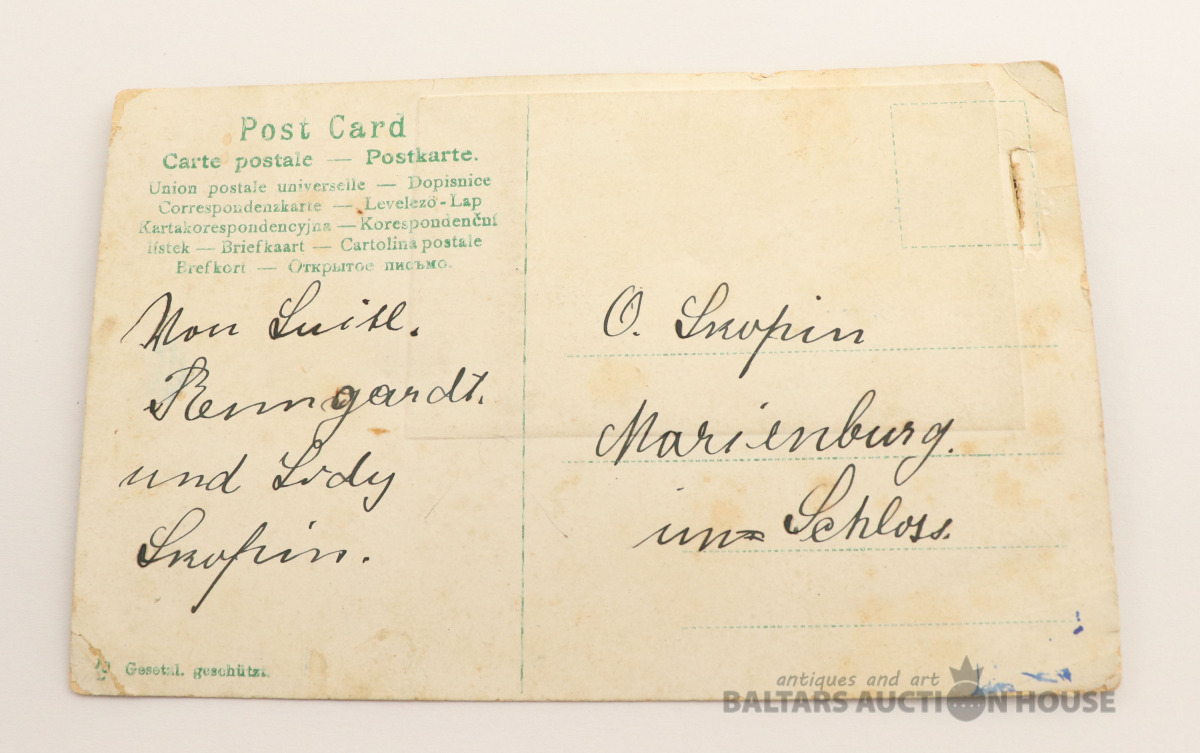 Post Card
Carte postale — Postkarte.
Union postale universelle — Dopisnice
Correspondenzkarte — Levelező-Lap
Kartakorespondencyjna — Korespondenční
lístek — Briefkaart — Cartolina postale
Brefkort — Открытое письмо.
Von
und
Skopin.
O. Skopin
Marienburg.
Schloss.
Gesetzl. geschützt.
antiques and art
BALTARS AUCTION HOUSE